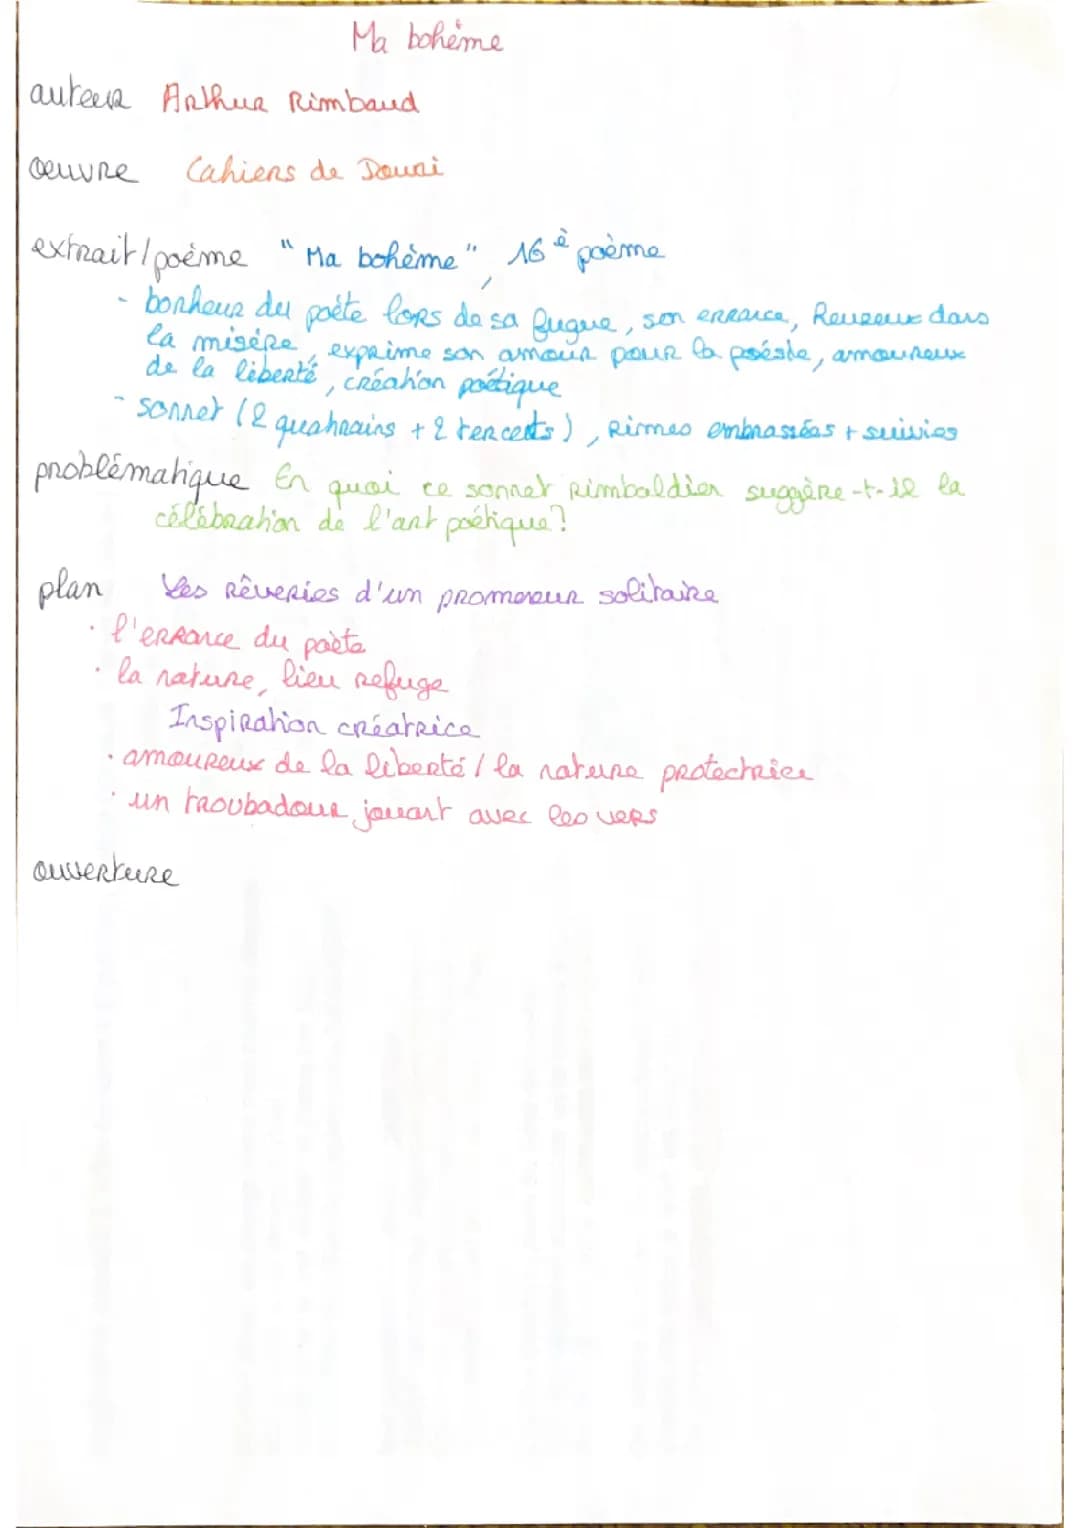 Ma bohème
auteur Arthur Rimbaud
œuvre Cahiers de Douai
extrait/poème "Ma bohème", 16è poème
- bonheur du poète lors de sa fugue, son errance, heureux dans
la misère, exprime son amour pour la poésie, amoureux
de la liberté, création poétique
- sonnet (2 quatrains + 2 tercets), rimes embrassées + suivies
problématique En quoi ce sonnet rimbaldien suggère-t-il la
célébration de l'art poétique?
plan Les rêveries d'un promeneur solitaire
· l'errance du poète
· la nature, lieu refuge
Inspiration créatrice
· amoureux de la liberté / la nature protectrice
· un troubadour jouant avec les vers
ouverture